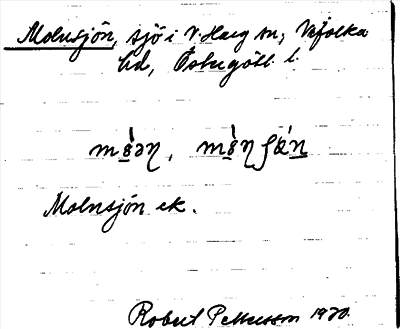 Molnsjön, sjö i V. Harg sn, Vifolka
hd, Östergötl. l.
Molnsjön ek.
Robert Pettersson 1930